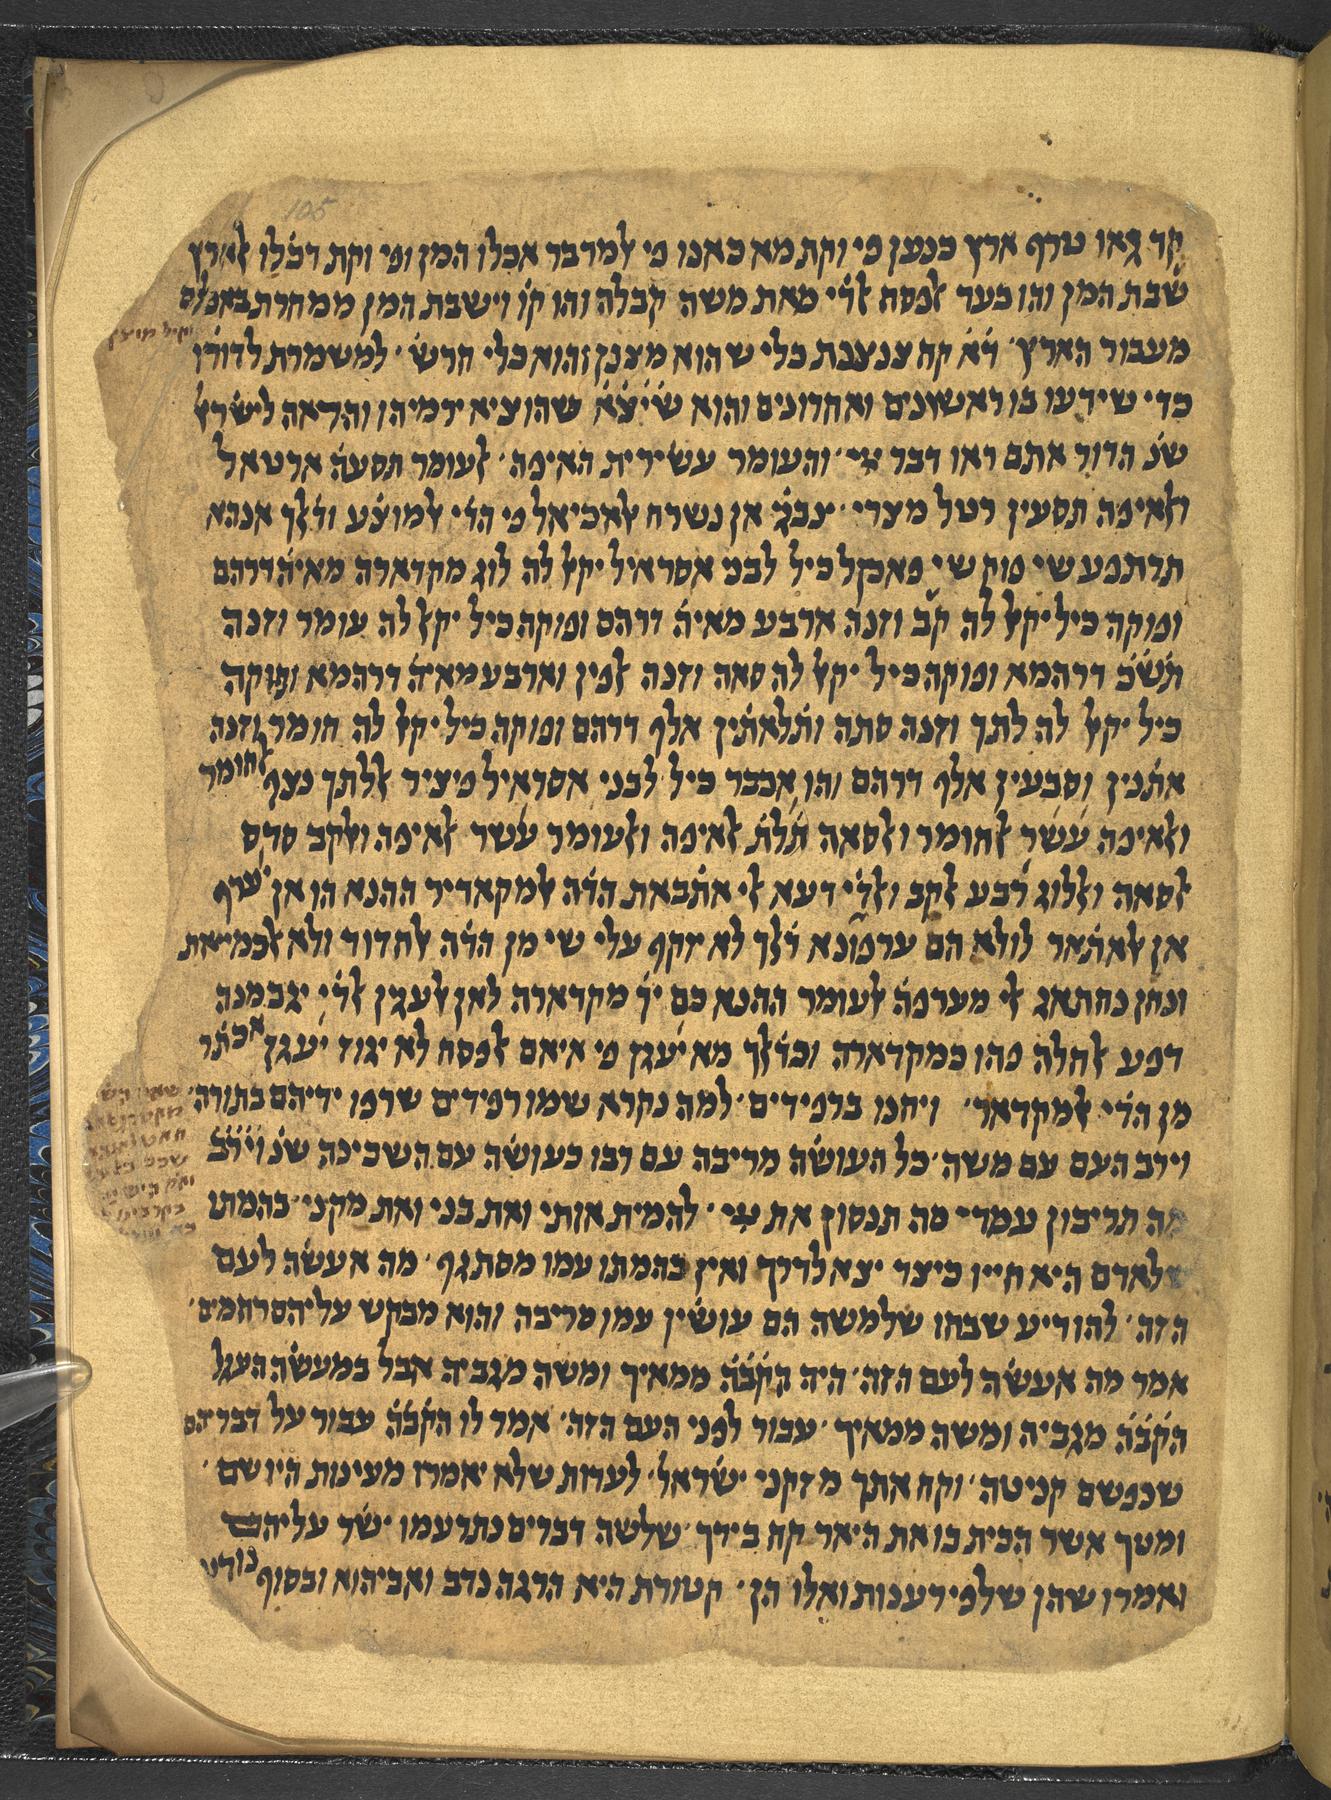 105
קד גאו טרף ארץ כנען פי וקת מא כאנו פי אלמדבר אכלו המן ופי וקת דכלו אלארץ
שבת המן והו בעד אלפסח אלדי מאת משה קבלה והו קו וישבת המן ממחרת באכלם
מעבור הארץ׳ ד̇א̇ קח צנצנת כלי שהוא מצנן והוא כלי חרש׳ למשמרת לדורו
כדי שידעו בו ראשונים ואחרונים והוא שיצא שהוציא ירמיהו והראה לישראל
שנ הדור אתם ראו דבר ייי׳ והעומר עשירית האיפה׳ אלעומר תסעה ארטאל
ואלאיפה תסעין רטל מצרי׳ ינבגי אן נשרח אלאכיאל פי הדי אלמוצע ודלך אנהא
תרתפע שי פוק שי פאכול כיל לבני אסראיל יקאל לה לוג מקדארה מאיה דרהם
ופוקה כיל יקאל לה קב וזנה ארבע מאיה דרהם ופוקה כיל יקאל לה עומר וזנה
תשכ דרהמא ופוקה כיל יקאל לה סאה וזנה אלפין וארבעמאיה דרהמא ופוקה
כיל יקאל לה לתך וזנה סתה ותלאתין אלף דרהם ופוקה כיל יקאל לה חומר וזנה
אתנין וסבעין אלף דרהם והו אכבר כיל לבני אסראיל פיציר אללתך נצף אלחומר
ואלאיפה עשר אלחומר ואלסאה תלת אלאיפה ואלעומר עשר אלאיפה ואלקב סדס
אלסאה ואללוג רבע אלקב ואלדי דעא אלי אתבאת הדה אלמקאדיר ההנא הו אן יערף
אן אלאתאר לולא הם ערפונא דלך לא יוקף עלי שי מן הדה אלחדוד ולא אלכמיאת
ונחן נחתאג אלי מערפה אלעומר ההנא כם יך מקדארה לאן אלעגין אלדי יגב מנה
דפע אלחלה פהו כמקדארה וכדלך מא יעגן פי איאם אלפסח לא יגוז יעגן אכתר
מן הדי אלמקדאר׳ ויחנו ברפידים׳ למה נקרא שמו רפידים שרפו ידיהם בתורה׳
וירב העם עם משה׳ כל העושה מריבה עם רבו כעושה עם השכינה שנ וירב
מה תריבון עמדי מה תנסון את ייי׳ להמית אותי ואת בני ואת מקני׳ בהמתו
שלאדם היא חייו כיצד יצא לדרך ואין בהמתו עמו מסתגף׳ מה אעשה לעם
הזה׳ להודיע שבחו שלמשה הם עושין עמו מריבה והוא מבקש עליהם רחמים׳
אמר מה אעשה לעם הזה׳ היה הקבה ממאיך ומשה מגביה אבל במעשה העגל
הקבה מגביה ומשה ממאיך׳ עבור לפני העם הזה׳ אמר לו הקבה עבור על דבריהם
שנפשם קניטה׳ וקח אתך מזקני ישראל׳ לעדות שלא יאמרו מעינות היו שם׳
ומטך אשר הכית בו את היאר קח בידך׳ שלשה דברים נתרעמו ישר עליהם
ואמרו שהן שלפירענות ואלו הן׳ קטורת היא הרגה נדב ואביהוא ובסוף נודע